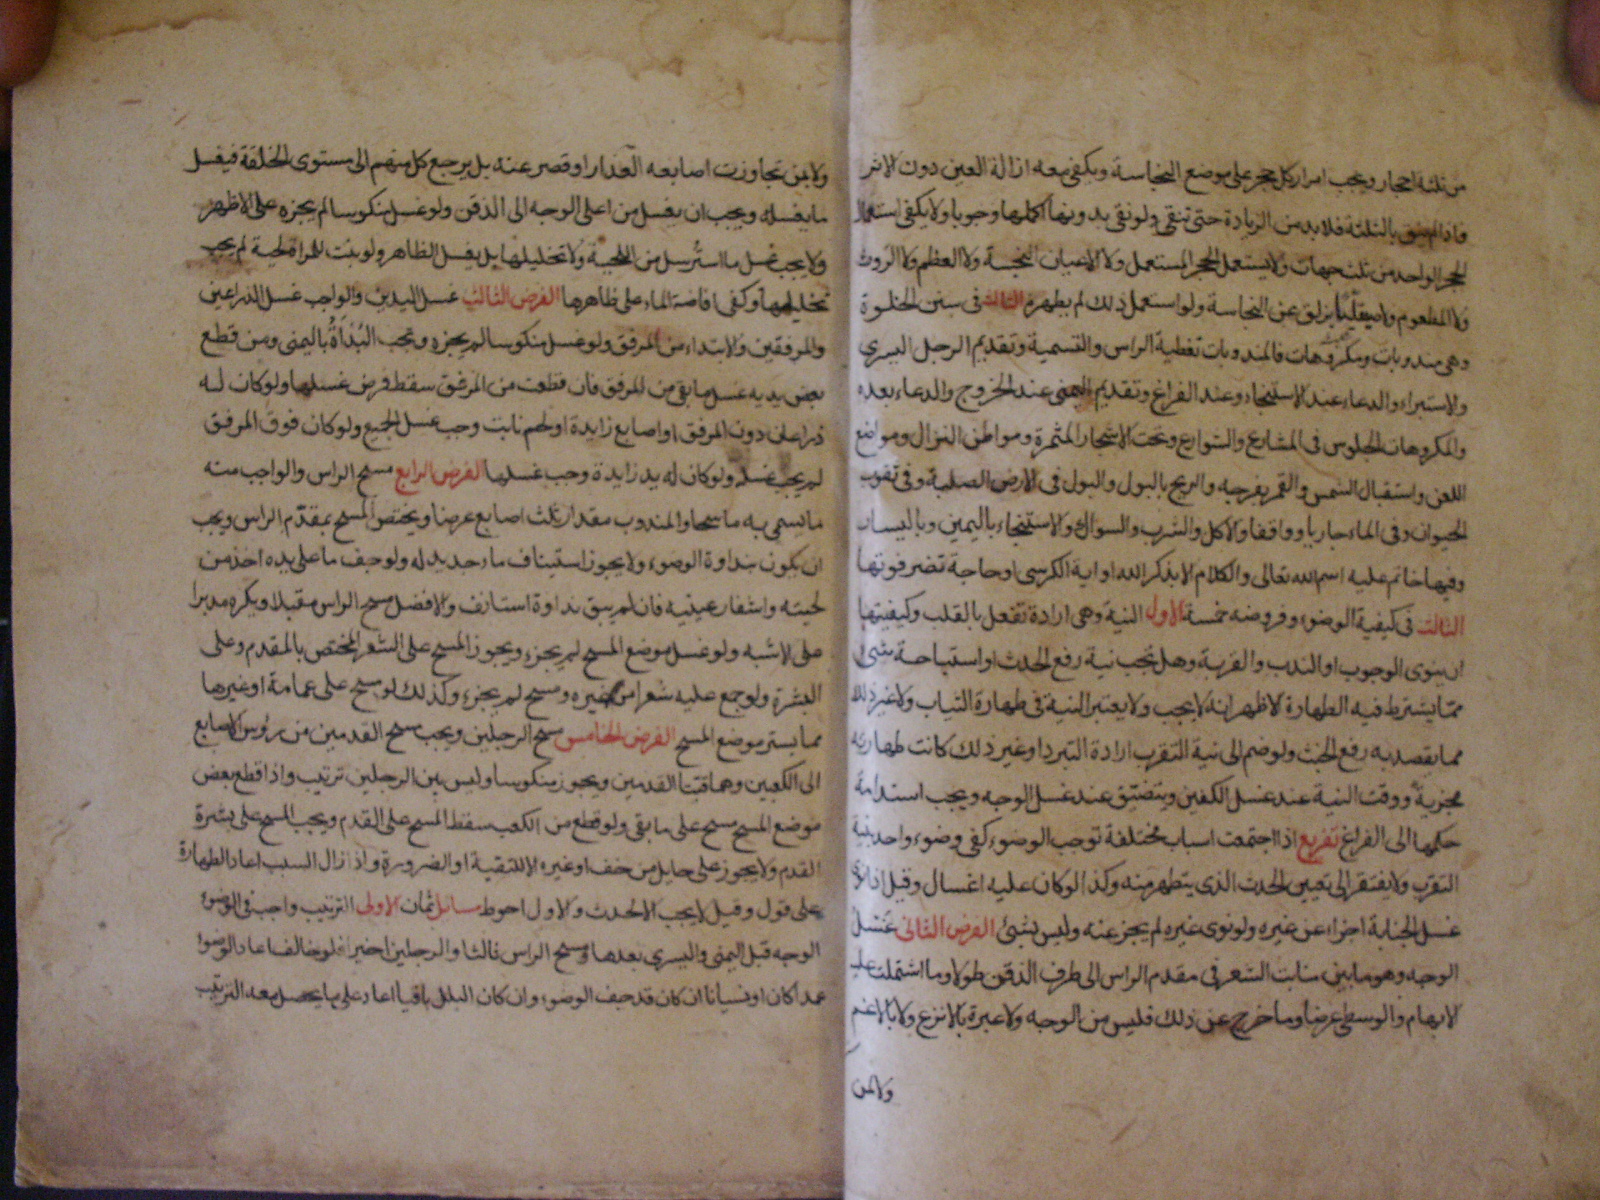 من ثلثة احجار ويجب امرار كل حجر على موضع النجاسة ويكفى معه ازالة العين دون الاثر
فاذا لم ينق بالثلثة فلا بد من الزيادة حتى تنقى ولو نقى بدونها اكملها وجوبا ولا يكفى استعمال
الحجر الواحد من ثلث جهات ولا يستعمل الحجر المستعمل ولا الاعيان النجسة ولا العظم ولا الروث
ولا المطعوم ولا صيقل يزلق عن النجاسة ولو استعمل ذلك لم يطهره الثالث فى سنن الخلوة
وهى مندوبات ومكروهات فالمندوبات تغطية الراس والتسمية وتقديم الرجل اليسرى
والاستبراء والدعاء عند الاستنجاء وعند الفراغ وتقديم اليمنى عند الخروج والدعاء بعده
والمكروهات الجلوس فى المشارع والشوارع وتحت الاشجار المثمرة ومواطن النزال ومواضع
اللعن واستقبال الشمس والقمر بفرجه والريح بالبول والبول فى الارض الصلبة وفى ثقوب
الحيوان وفى الماء جاريا وواقفا والاكل والشرب والسواك والاستنجاء باليمين وباليسار
وفيها خاتم عليه اسم الله تعالى والكلام الا بذكر الله او اية الكرسى او حاجة تضر فوتها
الثالث فى كيفية الوضوء وفروضه خمسة الاول النية وهى ارادة تفعل بالقلب وكيفيتها
ان ينوى الوجوب او الندب والقربة وهل تجب نية رفع الحدث او استباحة شئ
مما يشترط فيه الطهارة الاظهر انه لا يجب ولا يعتبر النية فى طهارة الثياب ولا غير ذلك
مما يقصد به رفع الخبث ولو ضم الى نية التقرب ارادة التبرد او غير ذلك كانت طهارته
مجزية ووقت النية عند غسل الكفين ويتضيق عند غسل الوجه ويجب استدامة
حكمها الى الفراغ تفريع اذا اجتمعت اسباب مختلفة توجب الوضوء كفى وضوء واحد بنية
التقرب ولا يفتقر الى تعيين الحدث الذى يتطهر منه وكذا لو كان عليه اغسال وقيل اذا نوى
غسل الجنابة اجزاء عن غيره ولو نوى غيره لم يجز عنه وليس بشئ الفرض الثانى غسل
الوجه وهو ما بين منابت الشعر فى مقدم الراس الى طرف الذقن طولا وما اشتملت عليه
الابهام والوسطى عرضا وما خرج عن ذلك فليس من الوجه ولا عبرة بالانزع ولا بالاغم
ولا بمن
ولا بمن تجاوزت اصابعه العذار او قصر عنه بل يرجع كل منهم الى مستوى الخلقة فيغسل
ما يغسله ويجب ان يغسل من اعلى الوجه الى الذقن ولو غسل منكوسا لم يجزه على الاظهر
ولا يجب غسل ما استرسل من اللحية ولا تخليلها بل يغسل الظاهر ولو نبت للمراة لحية لم يجب
تخليلها وكفى افاضة الماء على ظاهرها الفرض الثالث غسل اليدين والواجب غسل الذراعين
والمرفقين والابتداء من المرفق ولو غسل منكوسا لم يجزه وتجب البدأة باليمنى ومن قطع
بعض يديه غسل ما بقى من المرفق فان قطعت من المرفق سقط فرض غسلها ولو كان له
ذراعان دون المرفق او اصابع زايدة او لحم نابت وجب غسل الجميع ولو كان فوق المرفق
لم يجب غسله ولو كان له يد زايدة وجب غسلها الفرض الرابع مسح الراس والواجب منه
ما يسمى به ماسحا والمندوب مقدار ثلث اصابع عرضا ويختص المسح بمقدم الراس ويجب
ان يكون بنداوة الوضوء ولا يجوز استيناف ماء جديد له ولو جف ما على يده اخذ من
لحيته واشفار عينيه فان لم يبق نداوة استانف والافضل مسح الراس مقبلا ويكره مدبرا
على الاشبه ولو غسل موضع المسح لم يجزء ويجوز المسح على الشعر المختص بالمقدم وعلى
البشرة ولو جمع عليه شعرا من غيره ومسح لم يجزء وكذلك لو مسح على عمامة او غيرها
مما يستر موضع المسح الفرض الخامس مسح الرجلين ويجب مسح القدمين من رؤس الاصابع
الى الكعبين وهما قبتا القدمين ويجوز منكوسا وليس بين الرجلين ترتيب واذا قطع بعض
موضع المسح مسح على ما بقى ولو قطع من الكعب سقط المسح على القدم ويجب المسح على بشرة
القدم ولا يجوز على حايل من خف او غيره الا للتقية او الضرورة واذا زال السبب اعاد الطهارة
على قول وقيل لا يجب الا لحدث والاول احوط مسائل ثمان الاولى الترتيب واجب فى الوضوء
الوجه قبل اليمنى واليسرى بعدها ومسح الراس ثالثا والرجلين اخيرا فلو خالف اعاد الوضوء
عمدا كان او نسيانا ان كان قد جف الوضوء وان كان البلل باقيا اعاد على ما يحصل معه الترتيب